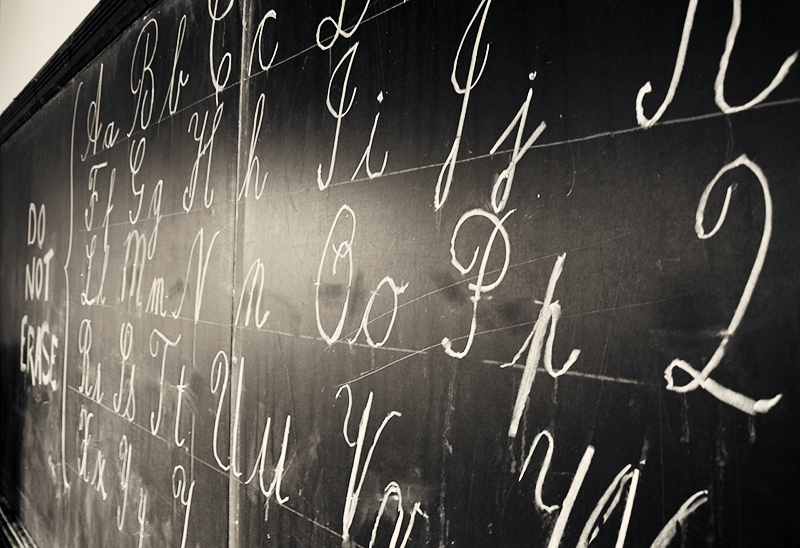 DO
NOT
ERASE
Aa Bb Cc D
Ff Gg Hh Ii Jj
Ll Mm Nn Oo Pp Q
Rr Ss Tt Uu Vv W
Xx Yy